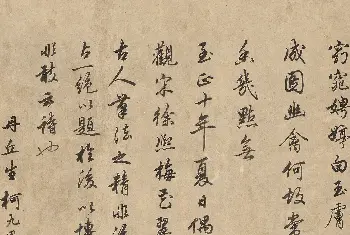 窈窕娉婷白玉膚
成圖幽會何故常
香幾點無
至正十年夏日偶
觀宋徐熙梅花翠
古人筆法之精非
占一絕以題於後以博
非敢云詩也
丹丘生柯九